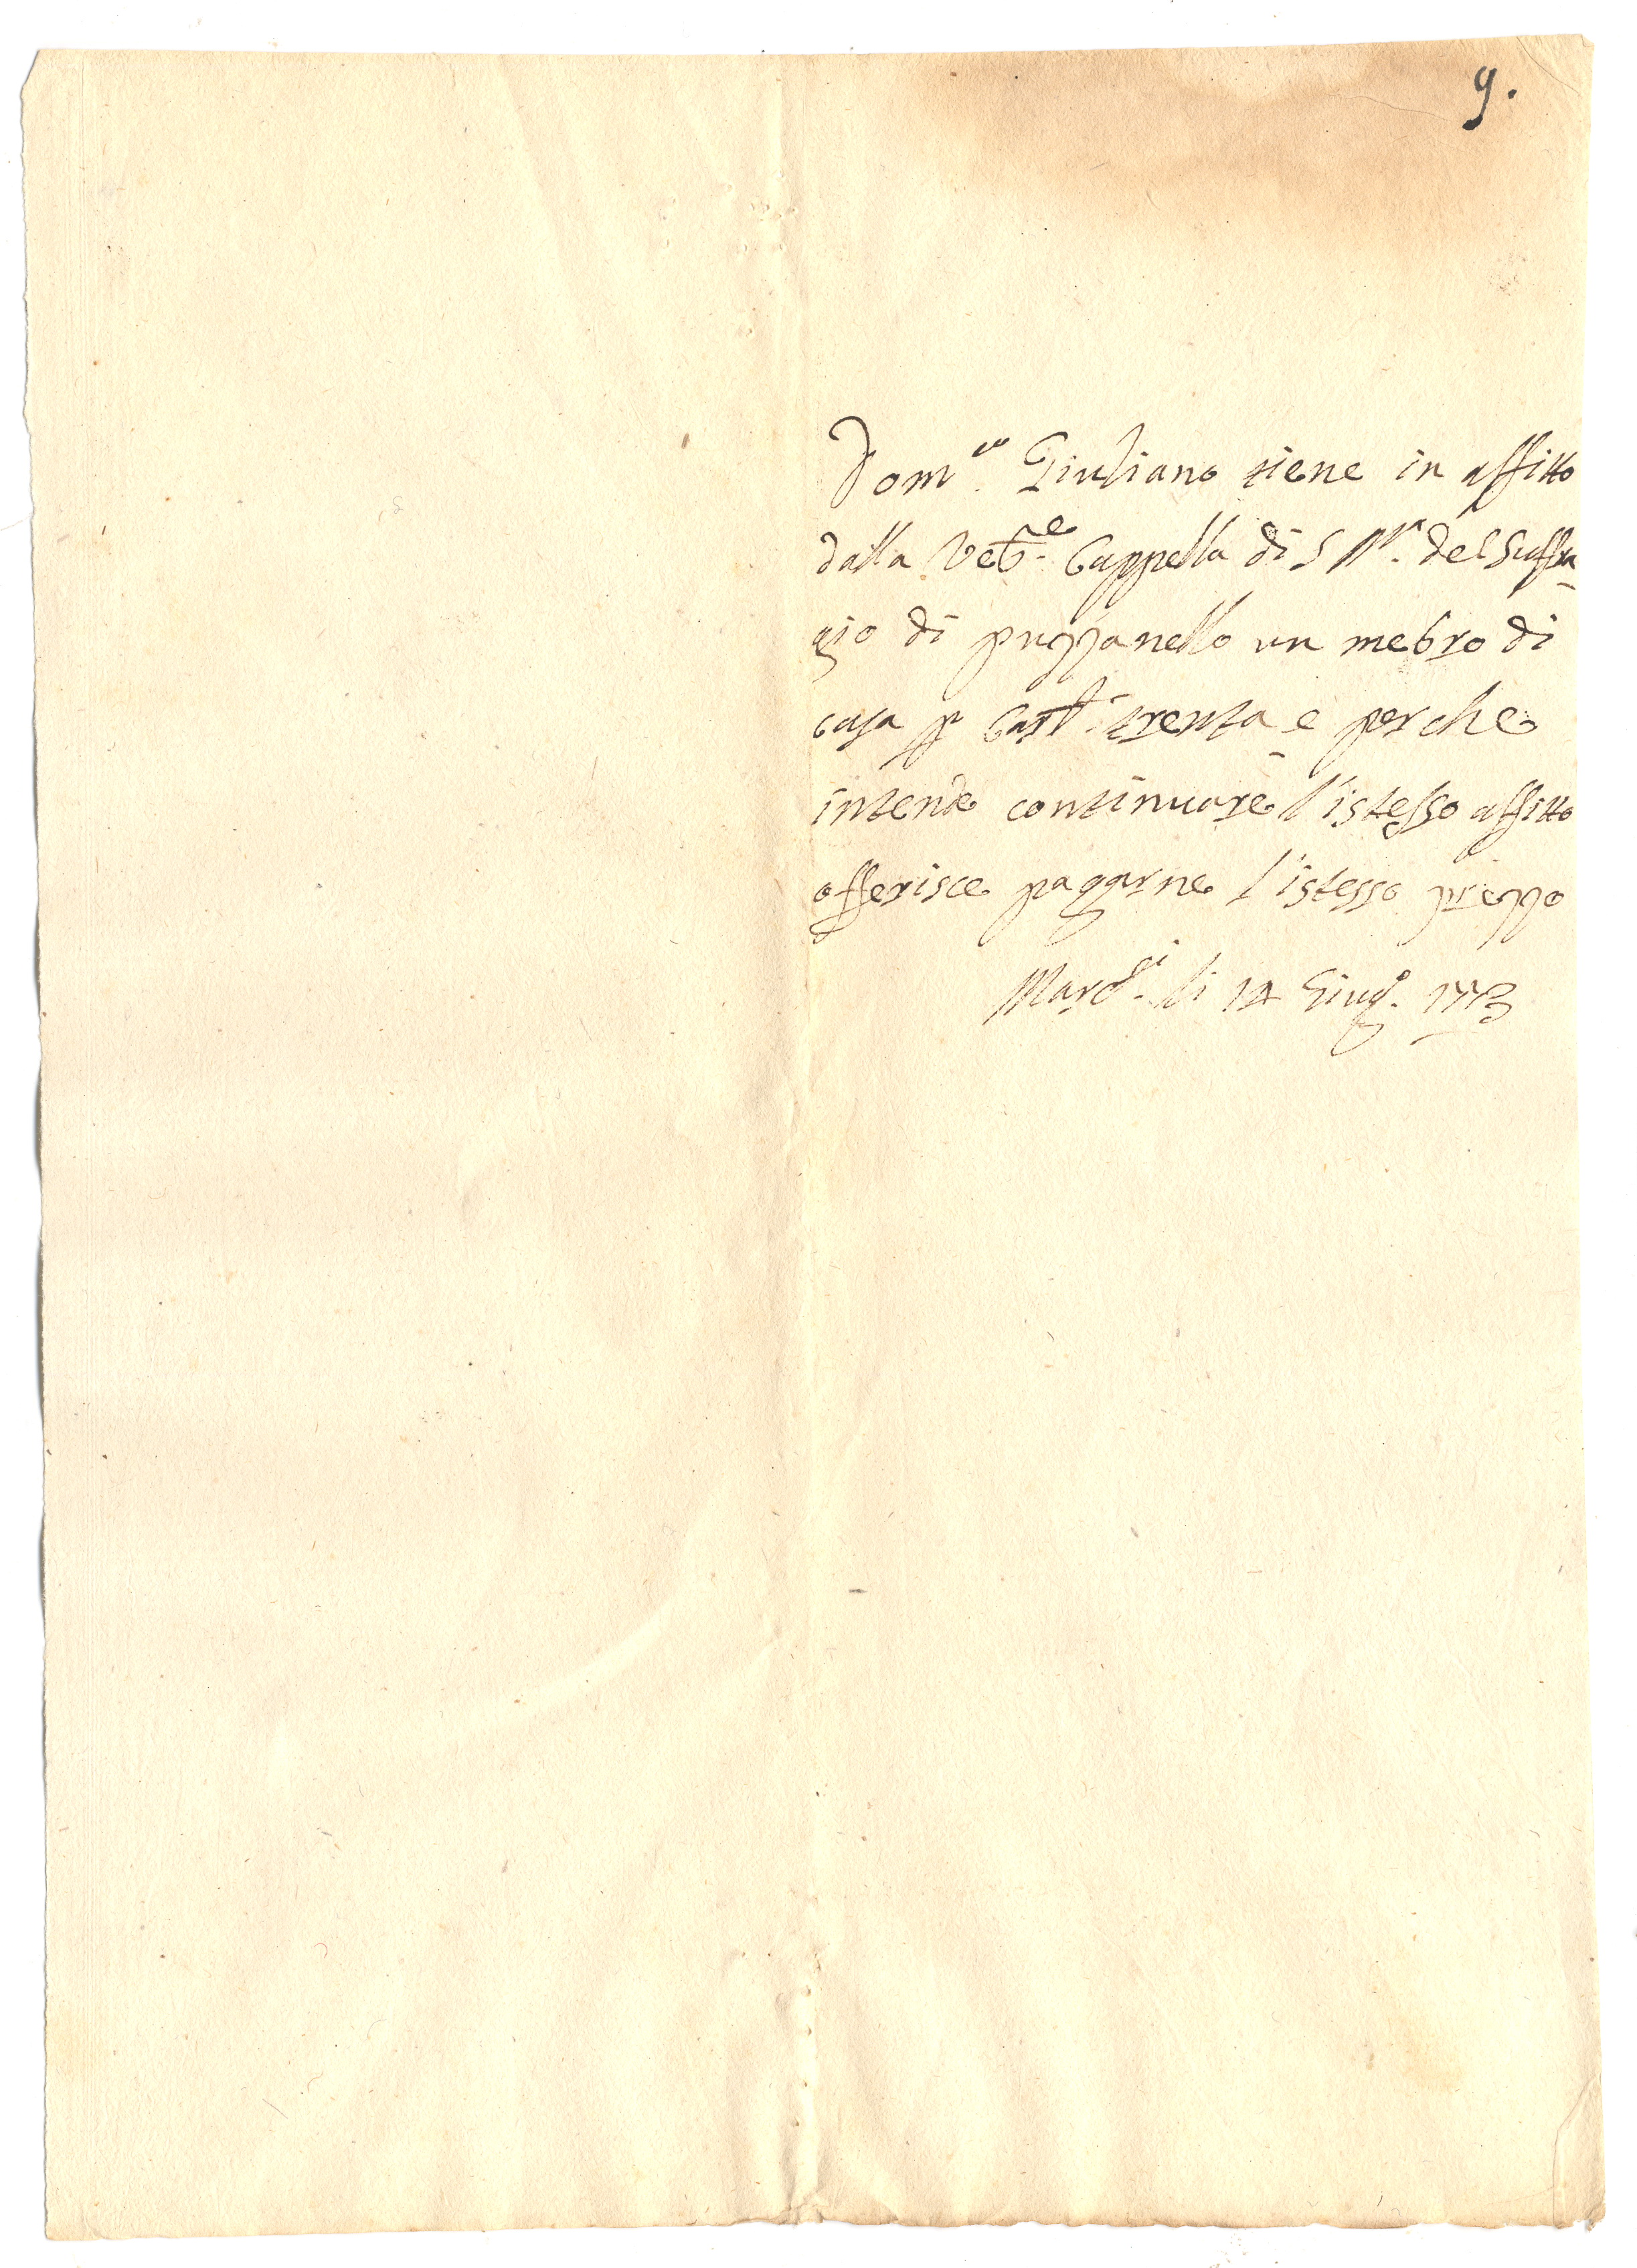 9.
Dom.co Giuliano tiene in affitto
dalla Veb.e Cappella di S M.a del Suffra
gio di puzzanello un mebro di
casa p Carl. trenta e perche
intende continuare l'istesso affitto
offerisce pagarne l'istesso prezzo
Marc. li 14 Giug. 1773